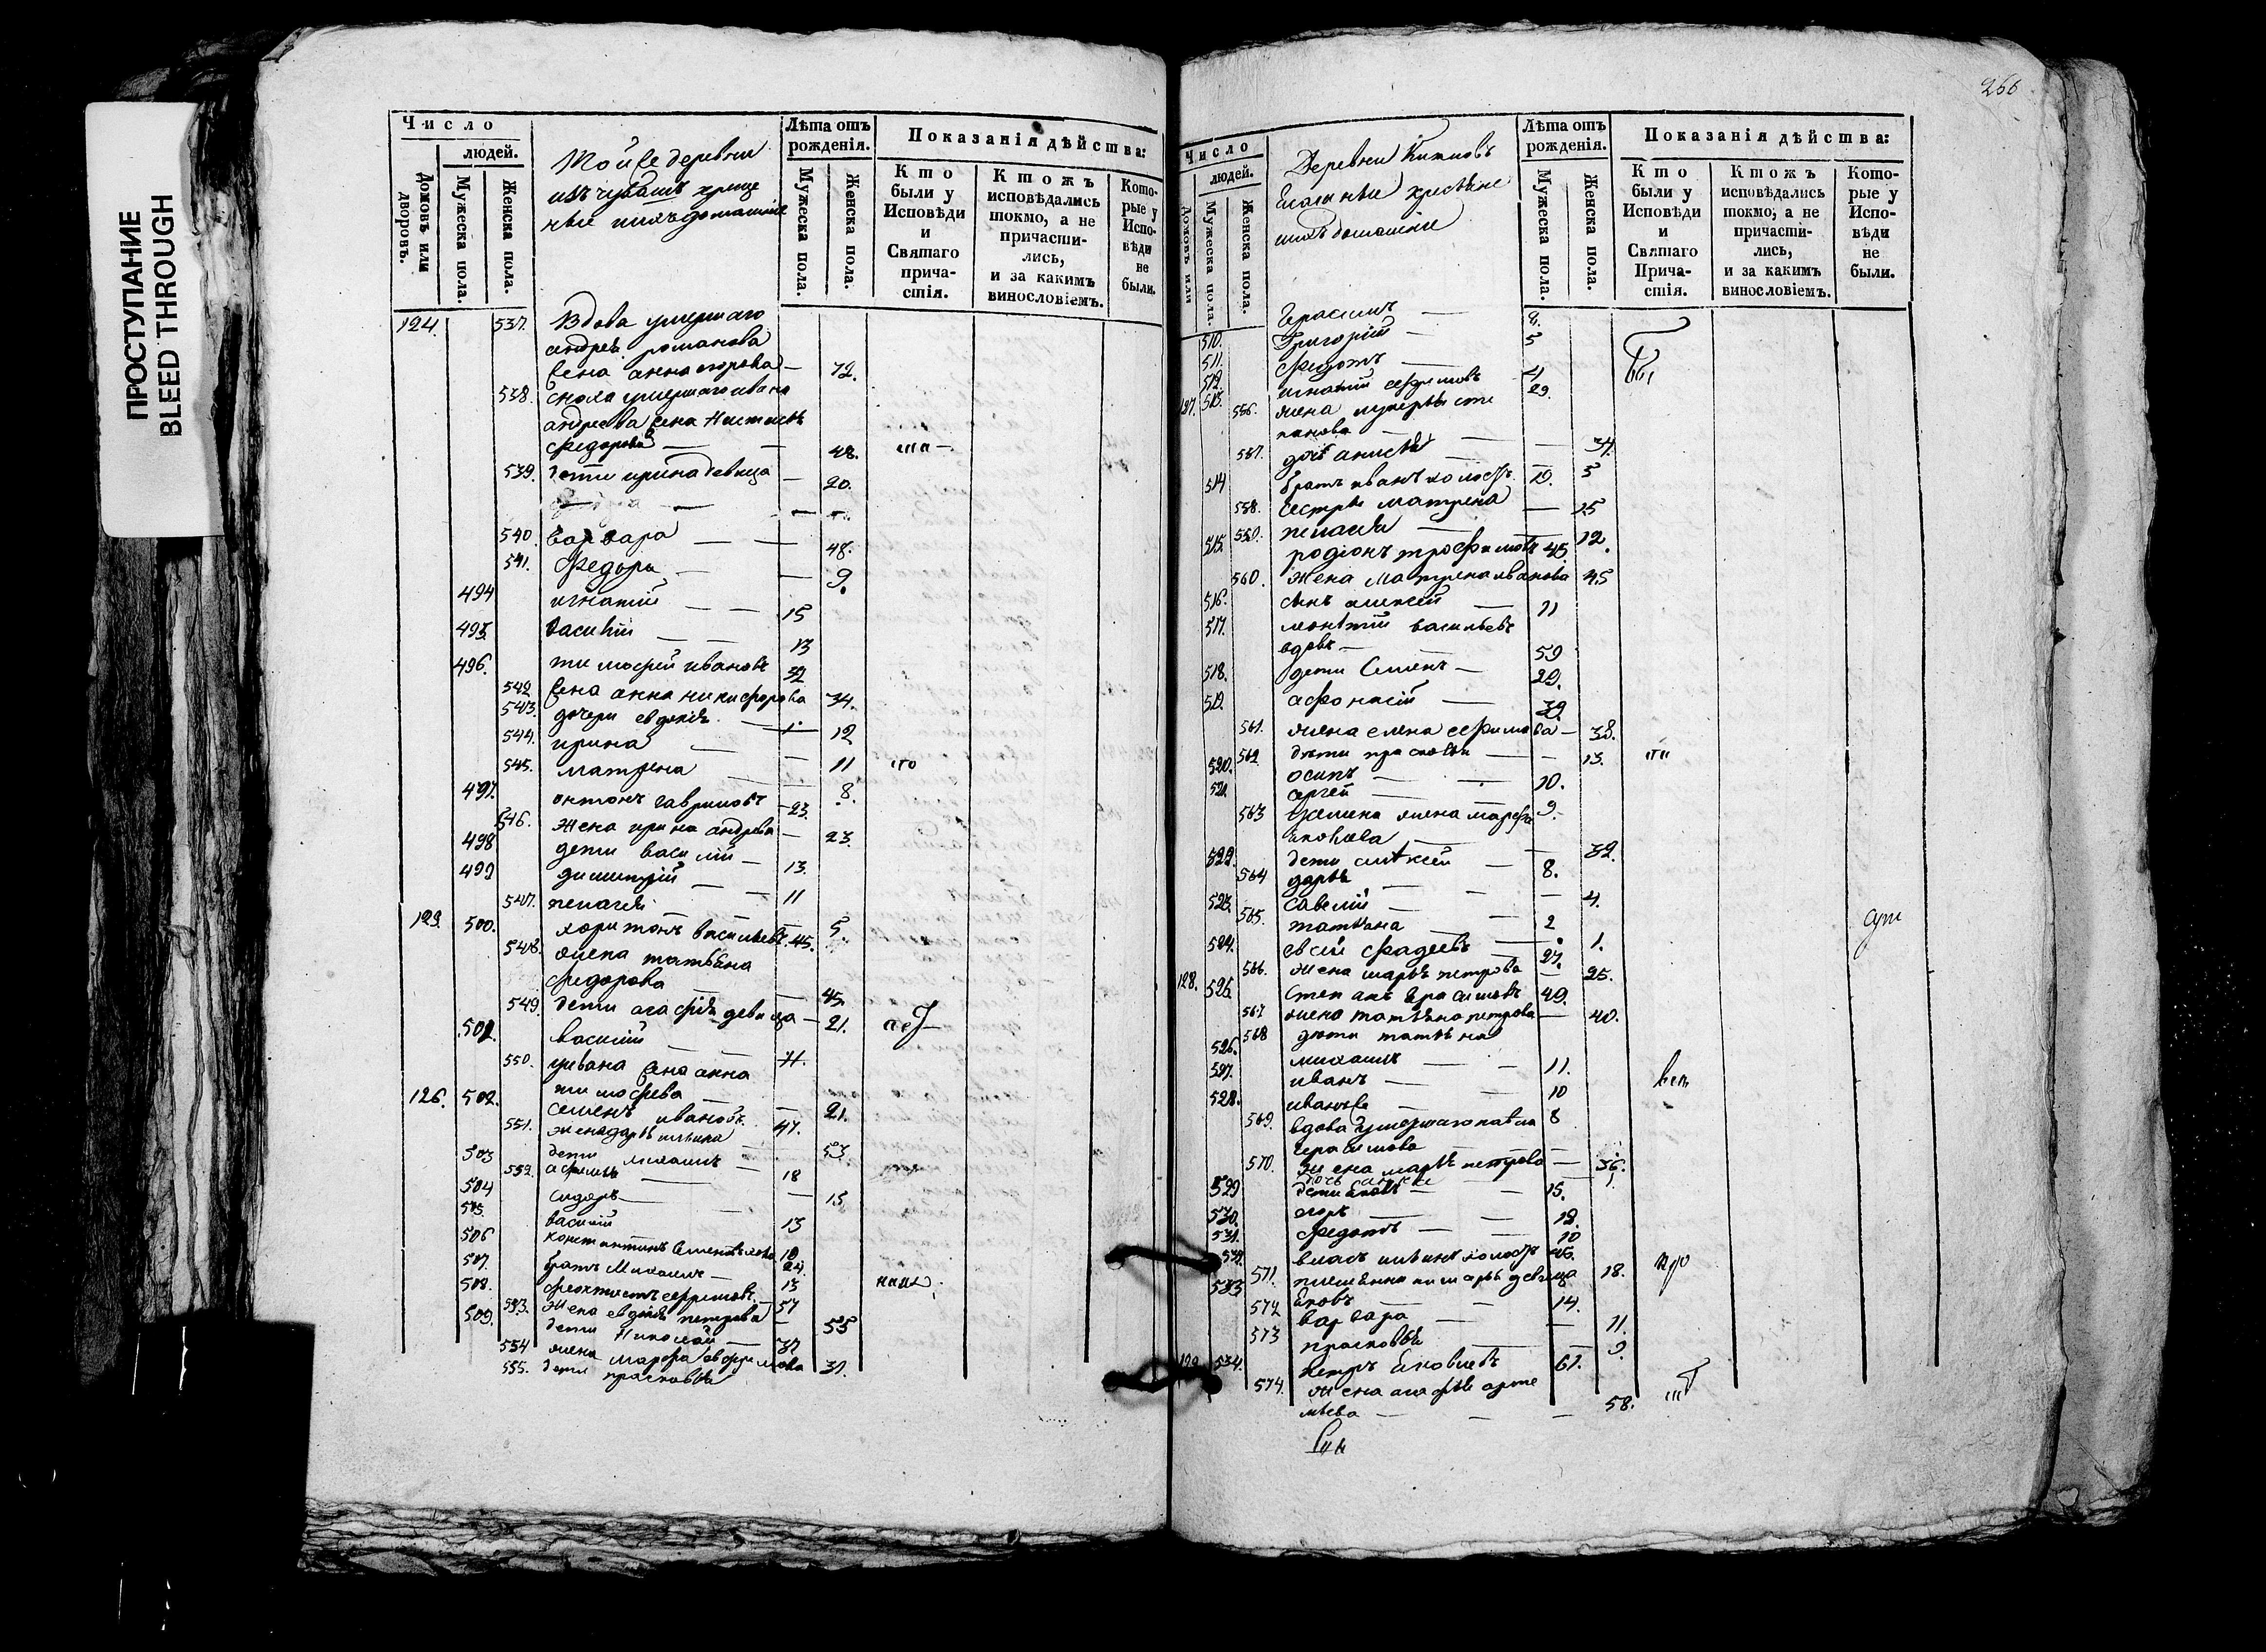 ПРОСТУПАНИЕ
BLEED THROUGH
Число
людей.
Домовъ или дворовъ.
Мужеска пола.
Женска пола.
Той же деревни
изъ чувашъ креще
ные ихъ домашніе
Лѣта отъ рожденія.
Мужеска пола.
Женска пола.
Показанія дѣйства:
Кто были у Исповѣди и Святаго причастія.
Ктожъ исповѣдались токмо, а не причастились, и за какимъ винословіемъ.
Которые у Исповѣди не были.
124. 537. Вдова умершаго
андрея романова
жена анна егорова — 72.
538. сноха умершаго ивана
андреева жена Настасья
Федорова — — 48.
539. дети ирина девица — 20.
540. варвара — — 48.
541. Федора — — 9.
494 игнатій — — 15
495 василій — — 13
496. тимофей ивановъ 32
542. жена анна никифорова 34.
543. дочери евдокія — 12
544. ирина — — 11
545. матрена — — 8.
497. антонъ гавриловъ — 23.
546. Жена ирина андреева — 23
498 дети василій — 13.
499 димитрій — 11
547. пелагея — 5
500. харитонъ васильевъ 45.
548. жена татьяна
федорова — 45.
549. дети агафія девица — 21.
501. василій — — 11.
550. ивана жена анна
тимофева — — 21.
126. 502. семенъ ивановъ 47.
551. жена дарья ильина 53
503 дети михаилъ — 18
552. афимья — 15
504 сидоръ — 13
505. василій
506 константинъ
507. братъ Михаилъ —
508. феоктистъ ефремовъ — 57
553. Жена евдокія петрова — 55
509. дети Николай — 37
554 жена марфа ефримова 37.
555. дети прасковья
266
Число
людей.
Домовъ или
Мужеска пола.
Женска пола.
Деревни
ихъ домашніе
Лѣта отъ рожденія.
Мужеска пола.
Женска пола.
Показанія дѣйства:
Кто были у Исповѣди и Святаго Причастія.
Ктожъ исповѣдались токмо, а не причастились, и за какимъ винословіемъ.
Которые у Исповѣди не были.
Герасимъ — 8.
510. Григорій — 5
511. Федотъ —
512. игнатій ефимовъ 29.
127. 513. 556. жена лукерья сте
панова — — 34.
557. дочь анисья — 5
514 братъ иванъ холостъ 19.
558. сестры матрена — 15
559. пелагея — 12.
515. родіонъ трофимовъ 45
560. Жена Матрена иванова 45
516. сынъ алексей — 11
517. леонтій васильевъ
вдовъ — 59
518. дети Семенъ — 29.
519. афонасій — 39.
561. жена елена ефимова — 38.
562. дети прасковья — 13.
520. осипъ — 10.
521. сергей — 9.
563 семена жена марфа
яковлева — 32.
522. дети алексей — 8.
564 дарья — 4.
523. савелій — 2
565. татьяна — 1.
524. евсей фадеевъ — 27.
566. жена марья петрова — 25.
128. 525. степанъ герасимовъ 49.
567 жена татьяна петрова — 40.
568 дети татьяна
526. михаилъ — 11.
527. иванъ — 10
528. иванъже — 8
569. вдова умершаго павла
герасимова
570. жена марья петрова — 36.
529 дети яковъ — 15.
530. егоръ — 12.
531. федотъ — 10
532. власъ ильинъ холостъ 46.
571. племянники марья девица 18.
533 яковъ — 14.
572 варвара — 11.
573 прасковья — 9.
129 534. петръ яковлевъ 61.
574. жена агафья арте
мьева — — 58.
Сы